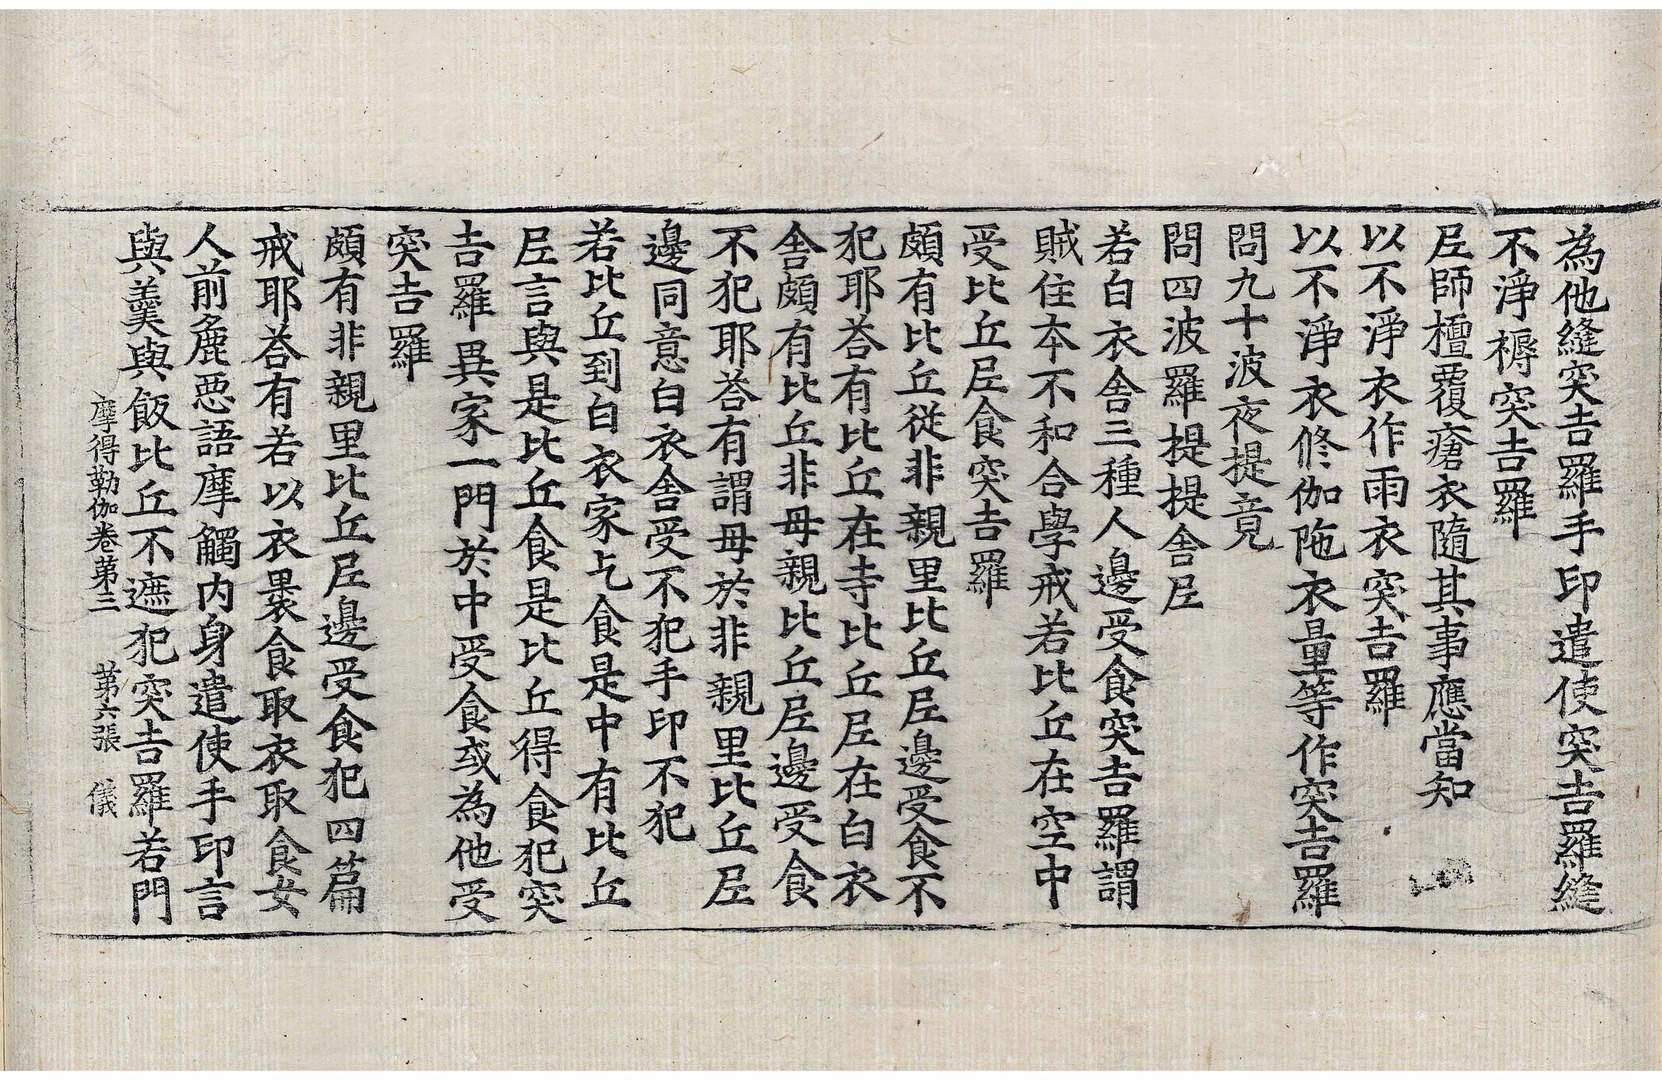 為他縫突吉羅手印遣使突吉羅縫
不淨褥突吉羅
尼師檀覆瘡衣隨其事應當知
以不淨衣作雨衣突吉羅
以不淨衣修伽陁衣量等作突吉羅
問九十波夜提竟
問四波羅提提舍尼
若白衣舍三種人邊受食突吉羅謂
賊住本不和合學戒若比丘在空中
受比丘尼食突吉羅
頗有比丘從非親里比丘尼邊受食不
犯耶荅有比丘在寺比丘尼在白衣
舍頗有比丘非母親比丘尼邊受食
不犯耶荅有謂母於非親里比丘尼
邊同意白衣舍受不犯手印不犯
若比丘到白衣家乞食是中有比丘
尼言與是比丘食是比丘得食犯突
吉羅異家一門於中受食或為他受
突吉羅
頗有非親里比丘尼邊受食犯四篇
戒耶荅有若以衣褁食取衣取食女
人前麁惡語摩觸內身遣使手印言
與羹與飯比丘不遮犯突吉羅若門
摩得勒伽卷第三 第六張 儀